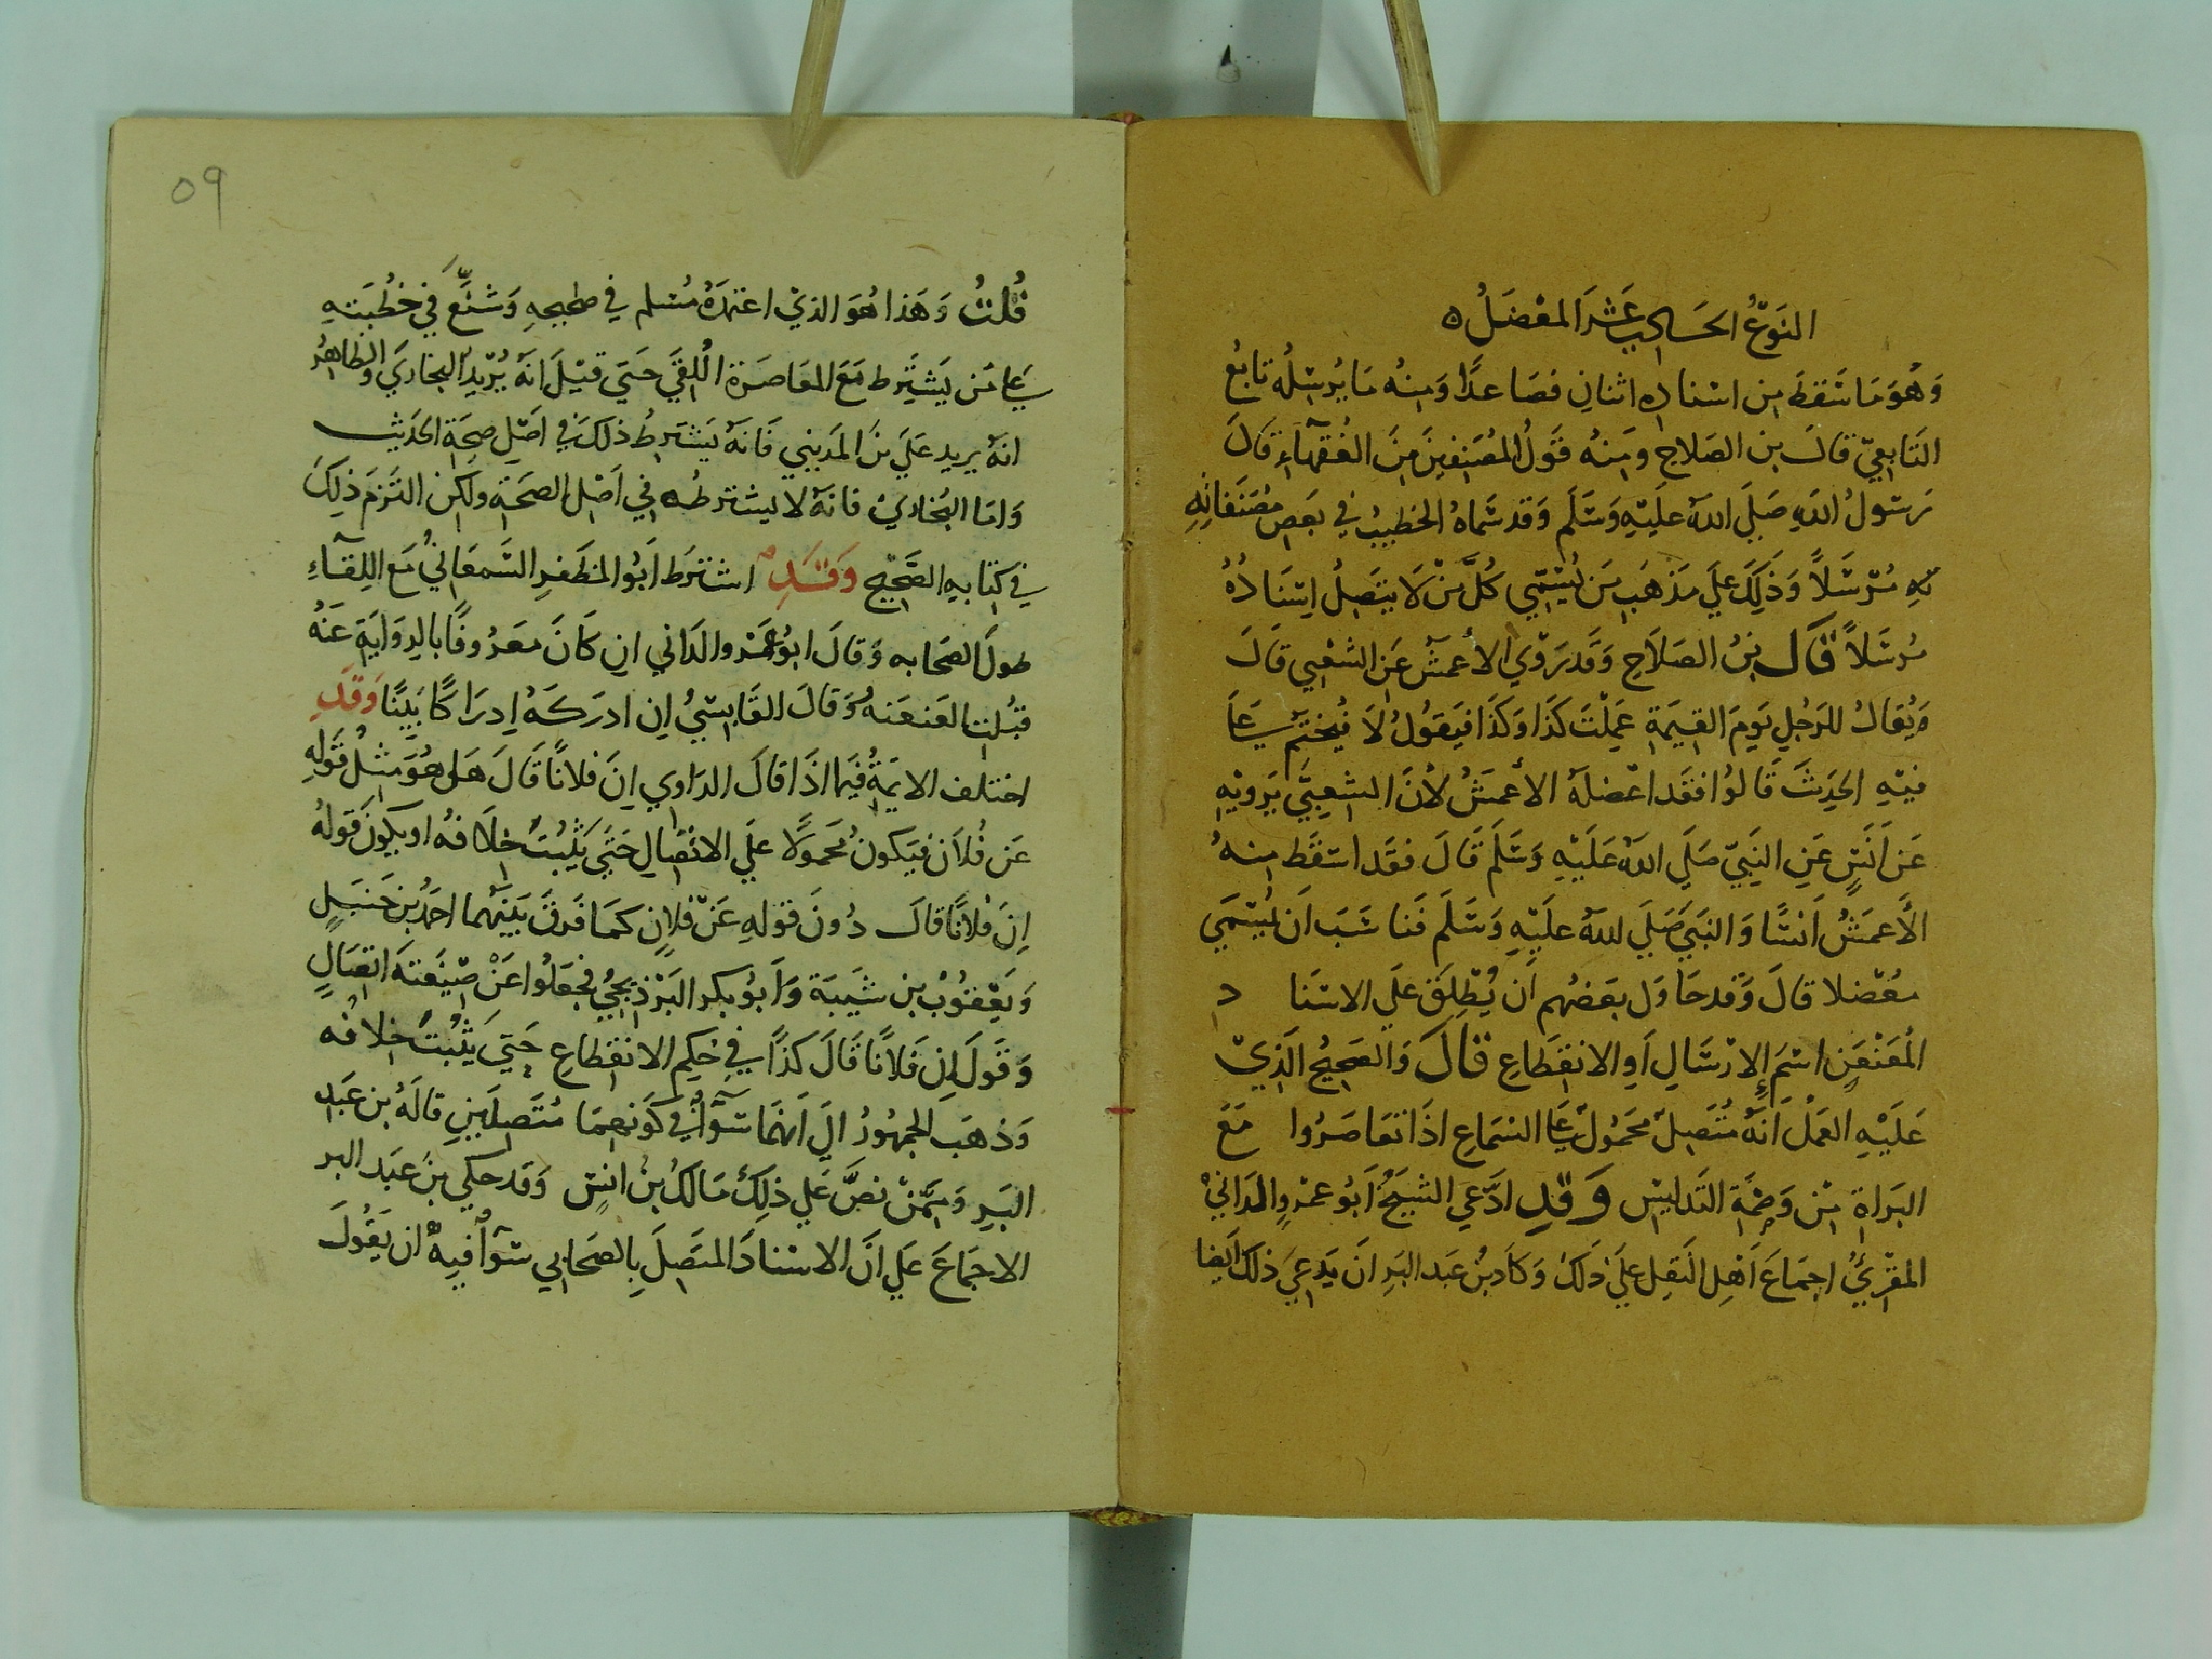 النوع الحادي عشر المعضل ه
وهو ما سقط من اسناده اثنان فصاعدا ومنه ما يرسله تابع
التابعي قال بن الصلاح ومنه قول المصنفين من الفقهاء قال
رسول الله صلي الله عليه وسلم وقد سماه الخطيب في بعض مصنفاته
مرسلا وذلك علي مذهب من يسمي كل من لا يتصل اسناده
مرسلا قال بن الصلاح وقد روي الأعمش عن الشعبي قال
ويقال للرجل يوم القيمة عملت كذا وكذا فيقول لا فيختم علي
فيه الحديث قالوا فقد اعضله الأعمش لأن الشعبي يرويه
عن أنس عن النبي صلي الله عليه وسلم قال فقد اسقط منه
الأعمش أنسا والنبي صلي الله عليه وسلم فناسب أن يسمي
معضلا قال وقد حاول بعضهم أن يطلق علي الاسناد
المعنعن اسم الإرسال او الانقطاع قال والصحيح الذي
عليه العمل أنه متصل محمول علي السماع اذا تعاصروا مع
البراة من وصمة التدليس وقد ادعي الشيخ أبو عمرو الداني
المقرئ اجماع أهل النقل علي ذلك وكاد بن عبد البر ان يدعي ذلك ايضا
٥٩
قلت وهذا هو الذي اعتمده مسلم في صحيحه وشنع في خطبته
علي من يشترط مع المعاصرة اللقي حتي قيل انه يريد البخاري والظاهر
انه يريد علي بن المديني فانه يشترط ذلك في اصل صحة الحديث
واما البخاري فانه لا يشترطه في اصل الصحة ولكن التزم ذلك
في كتابه الصحيح وقد اشترط أبو المظفر السمعاني مع اللقاء
طول الصحابه وقال ابو عمرو الداني ان كان معروفا بالرواية عنه
قبلت العنعنه وقال القابسي إن ادركه إدراكا بينا وقد
اختلف الايمة فيما اذا قال الراوي ان فلانا قال هل هو مثل قوله
عن فلان فيكون محمولا علي الاتصال حتي يثبت خلافه او يكون قوله
ان فلانا قال دون قوله عن فلان كما فرق بينهما احمد بن حنبل
ويعقوب بن شيبة وأبو بكر البرذيجي فجعلوا عن صيغته اتصال
وقول ان فلانا قال كذا في حكم الانقطاع حتي يثبت خلافه
وذهب الجمهور الي انهما سوآ في كونهما متصلين قاله بن عبد
البر وممن نص علي ذلك مالك بن انس وقد حكي بن عبد البر
الاجماع علي ان الاسناد المتصل بالصحابي سوآ فيه ان يقول